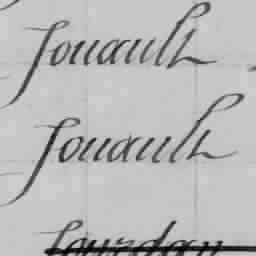 Jouault
Jouault
Jourdan